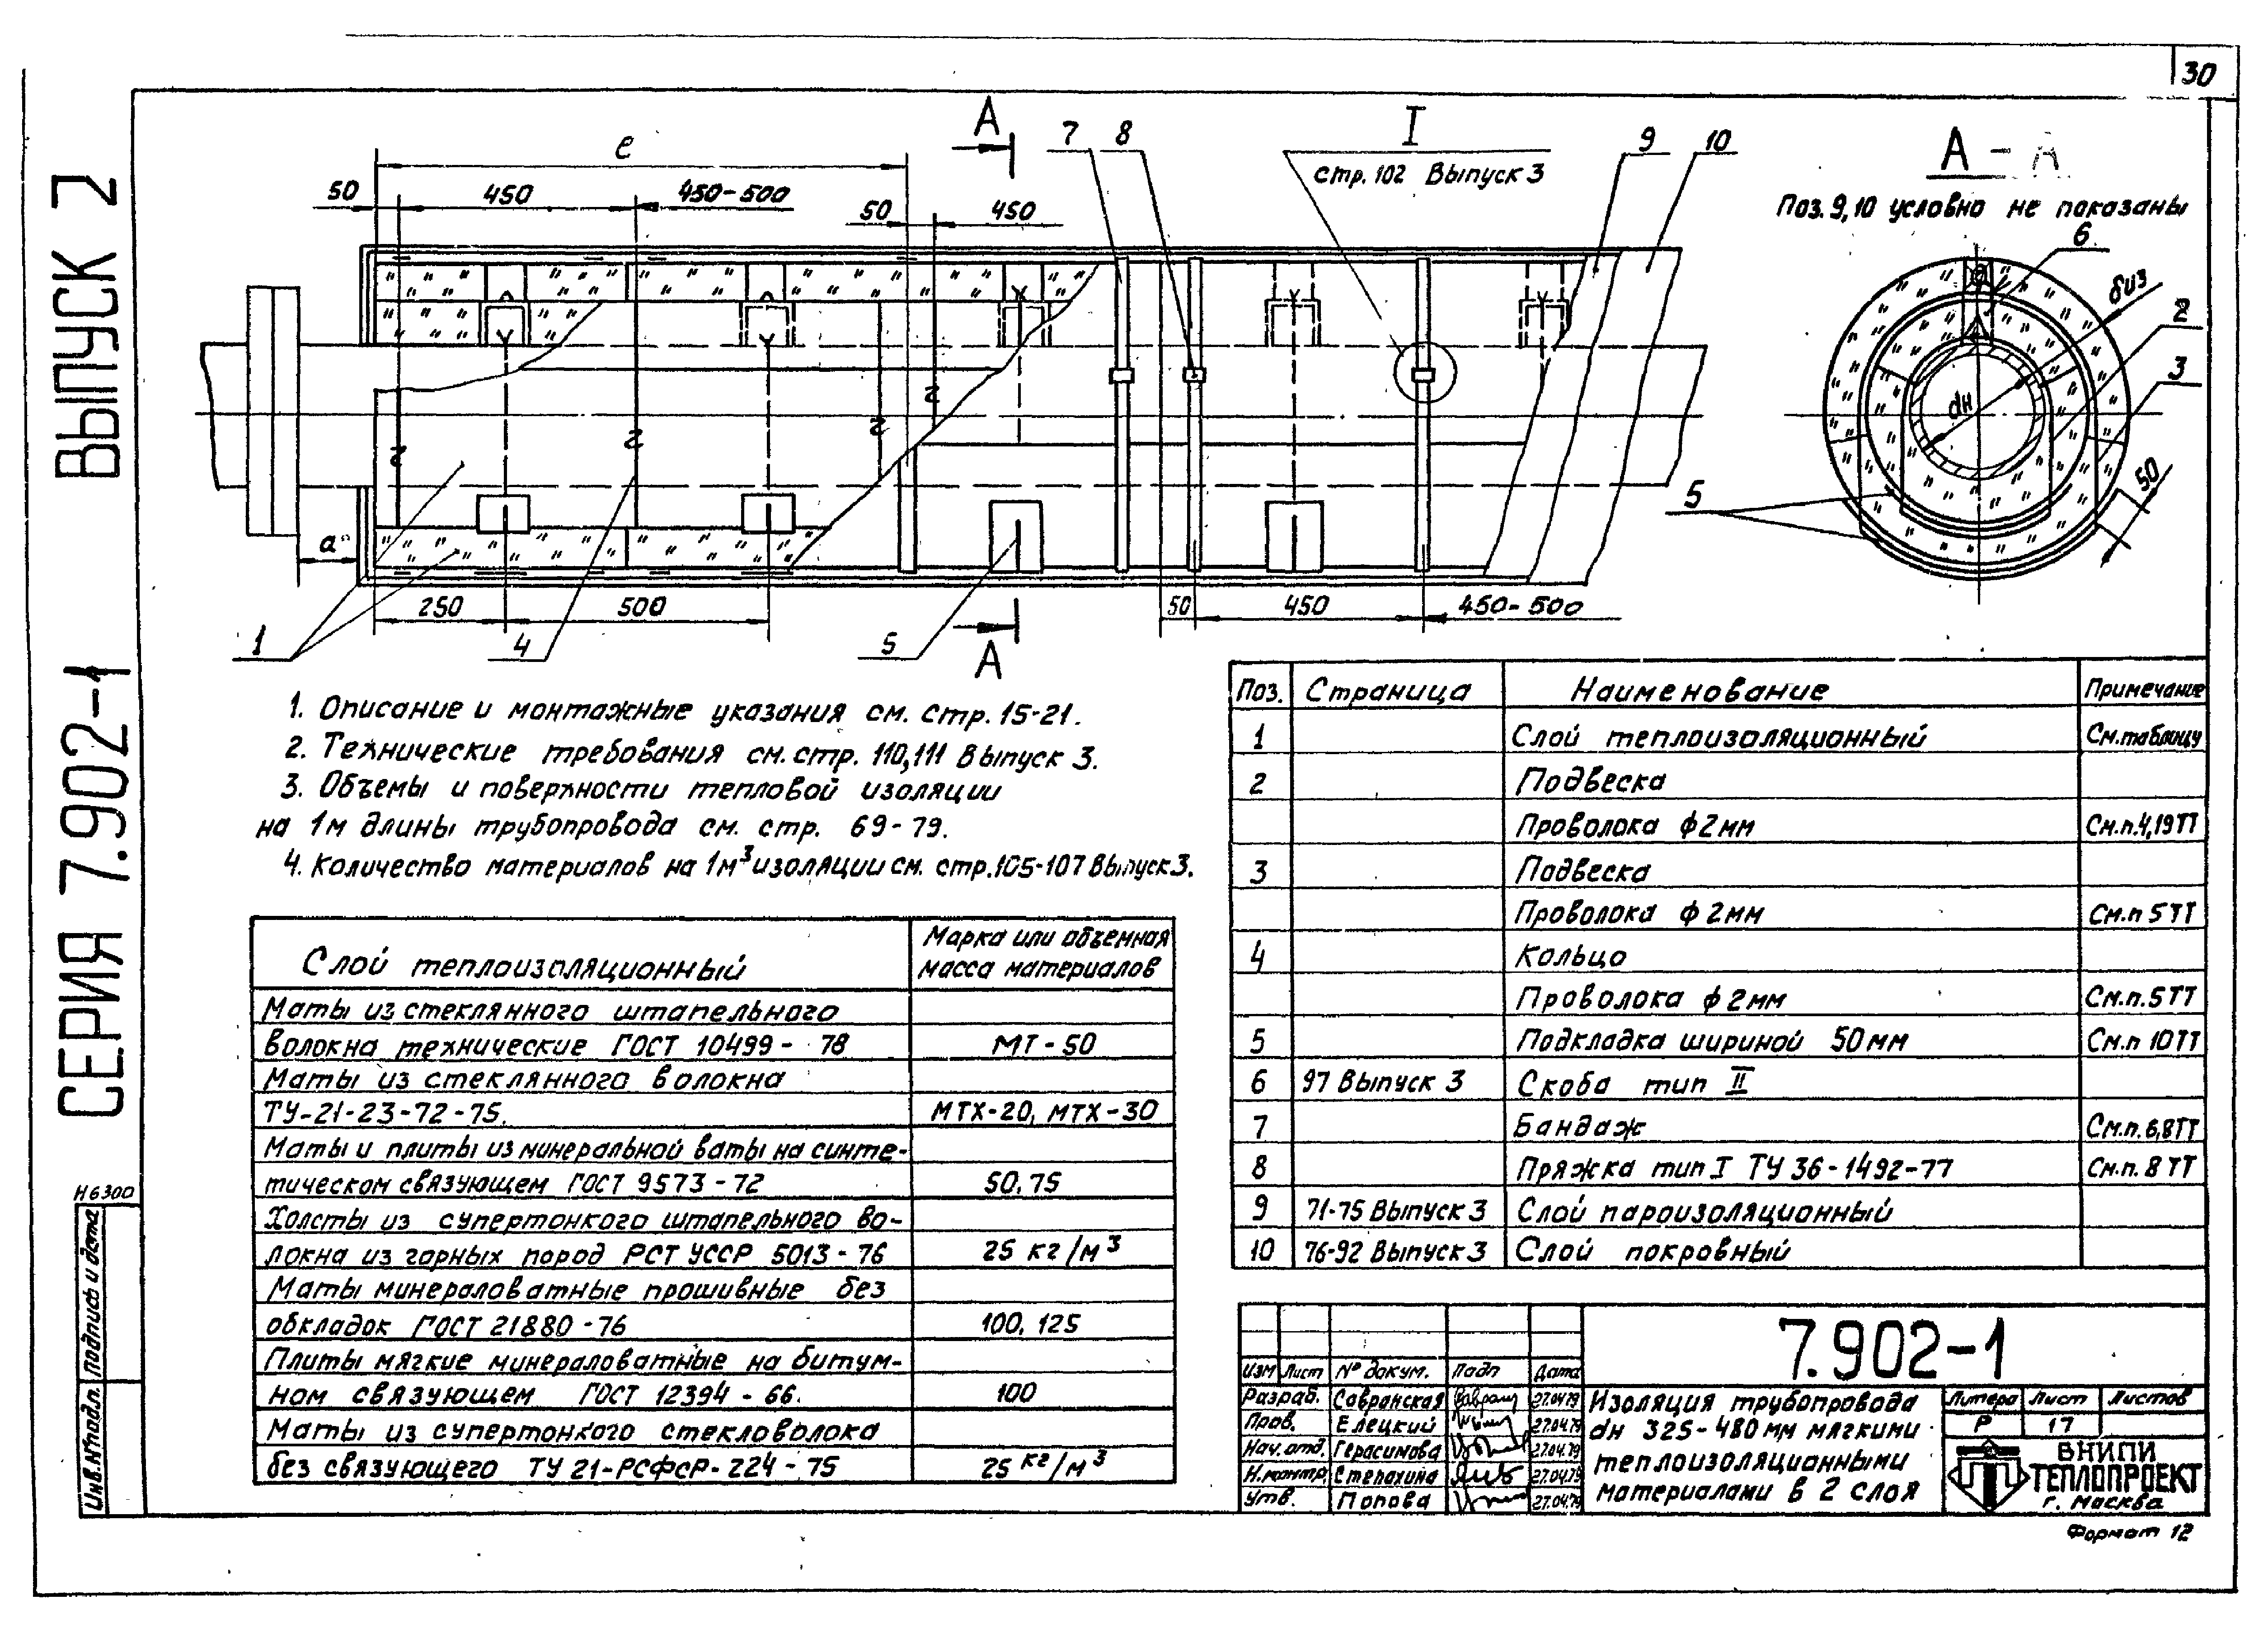 30
ВЫПУСК 2
СЕРИЯ 7.902-1
е
50
450
450-500
50
450
А
7
8
I
стр. 102 Выпуск 3
9
10
А - А
Поз. 9,10 условно не показаны
6
биз
2
3
dн
5
50
а
250
500
50
450
450-500
1
4
5
А
1. Описание и монтажные указания см. стр. 15-21.
2. Технические требования см. стр. 110,111 Выпуск 3.
3. Объемы и поверхности тепловой изоляции
на 1м длины трубопровода см. стр. 69-79.
4. Количество материалов на 1м³ изоляции см. стр. 105-107 Выпуск 3.
Слой теплоизоляционный
Марка или объемная
масса материалов
Маты из стеклянного штапельного
волокна технические ГОСТ 10499-78
МТ-50
Маты из стеклянного волокна
ТУ-21-23-72-75.
МТХ-20, МТХ-30
Маты и плиты из минеральной ваты на синте-
тическом связующем ГОСТ 9573-72
50,75
Холсты из супертонкого штапельного во-
локна из горных пород РСТ УССР 5013-76
25 кг/м³
Маты минераловатные прошивные без
обкладок ГОСТ 21880-76
100, 125
Плиты мягкие минераловатные на битум-
ном связующем ГОСТ 12394-66.
100
Маты из супертонкого стекловолока
без связующего ТУ 21-РСФСР-224-75
25 кг/м³
Поз. Страница Наименование Примечание
1 Слой теплоизоляционный См.таблицу
2 Подвеска
Проволока ф2мм См.п.4,19ТТ
3 Подвеска
Проволока ф2мм См.п 5ТТ
4 Кольцо
Проволока ф2мм См.п.5ТТ
5 Подкладка шириной 50мм См.п 10ТТ
6 97 Выпуск 3 Скоба тип II
7 Бандаж См.п.6,8ТТ
8 Пряжка тип I ТУ 36-1492-77 См.п. 8 ТТ
9 71-75 Выпуск 3 Слой пароизоляционный
10 76-92 Выпуск 3 Слой покровный
Н6300
Подпись и дата
Инв.№подл.
7.902-1
Изм Лист № докум. Подп Дата
Разраб. Савранская 27.04.79
Пров. Елецкий 27.04.79
Нач. отд. Герасимова 27.04.79
Н.контр. Степахина 27.04.79
Утв. Попова 27.04.79
Изоляция трубопровода
dн 325-480мм мягкими
теплоизоляционными
материалами в 2 слоя
Литера Лист Листов
Р 17
ВНИПИ
ТЕПЛОПРОЕКТ
г. Москва
Формат 12